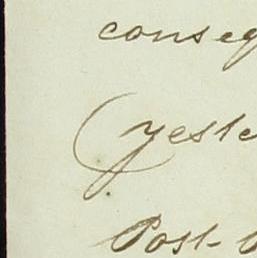 conseq
(yeste
Post-